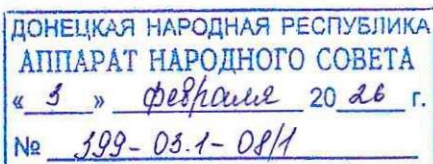 ДОНЕЦКАЯ НАРОДНАЯ РЕСПУБЛИКА
АППАРАТ НАРОДНОГО СОВЕТА
« 3 » февраля 20 26 г.
№ 399-03.1-08/1